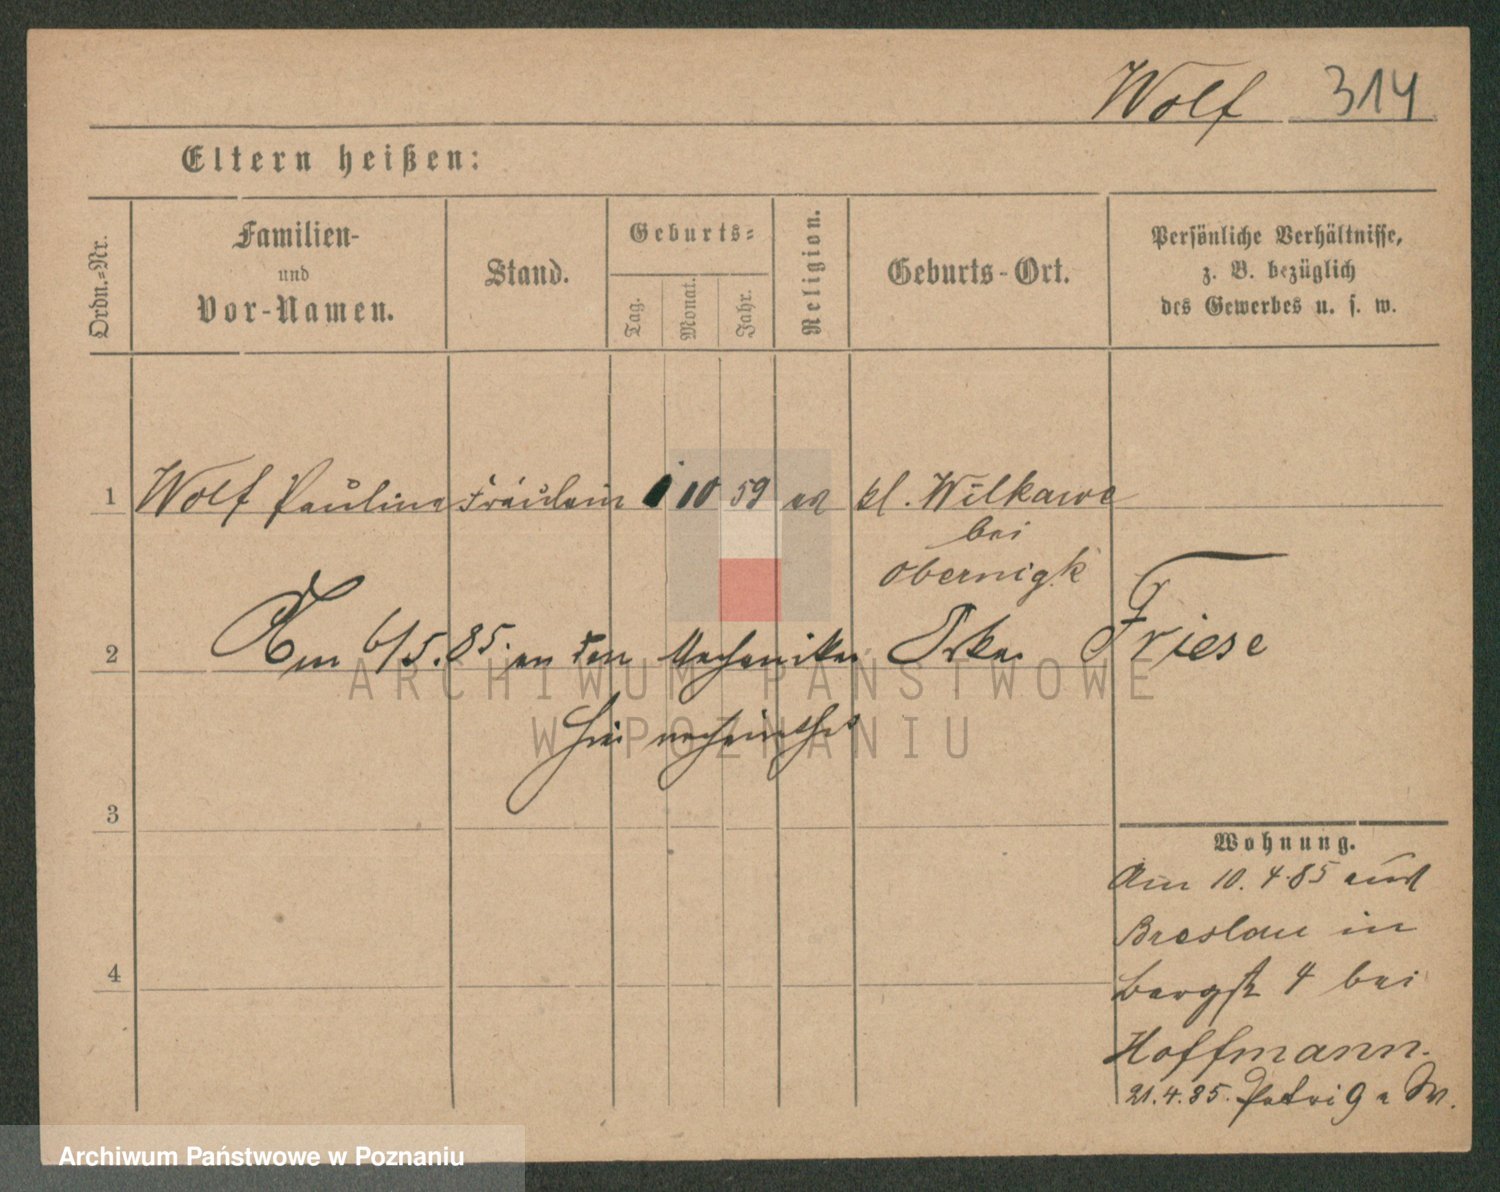 Wolf 314
Eltern heißen:
Ordn.-Nr.
Familien-
und
Vor-Namen.
Stand.
Geburts-
Tag.
Monat.
Jahr.
Religion.
Geburts-Ort.
Persönliche Verhältnisse,
z. B. bezüglich
des Gewerbes u. s. w.
1 Wolf Pauline Fräulein 1 10 59 ev kl. Wilkawe
bei
Obernigk
2 Am 6/5.85. an den Mechaniker Friese
hier verheirathet
3
Wohnung.
Am 10.4.85 aus
Breslau in
Bergstr 4 bei
Hoffmann.
21.4.85. Petri 9
4
ARCHIWUM PAŃSTWOWE
W POZNANIU
Archiwum Państwowe w Poznaniu